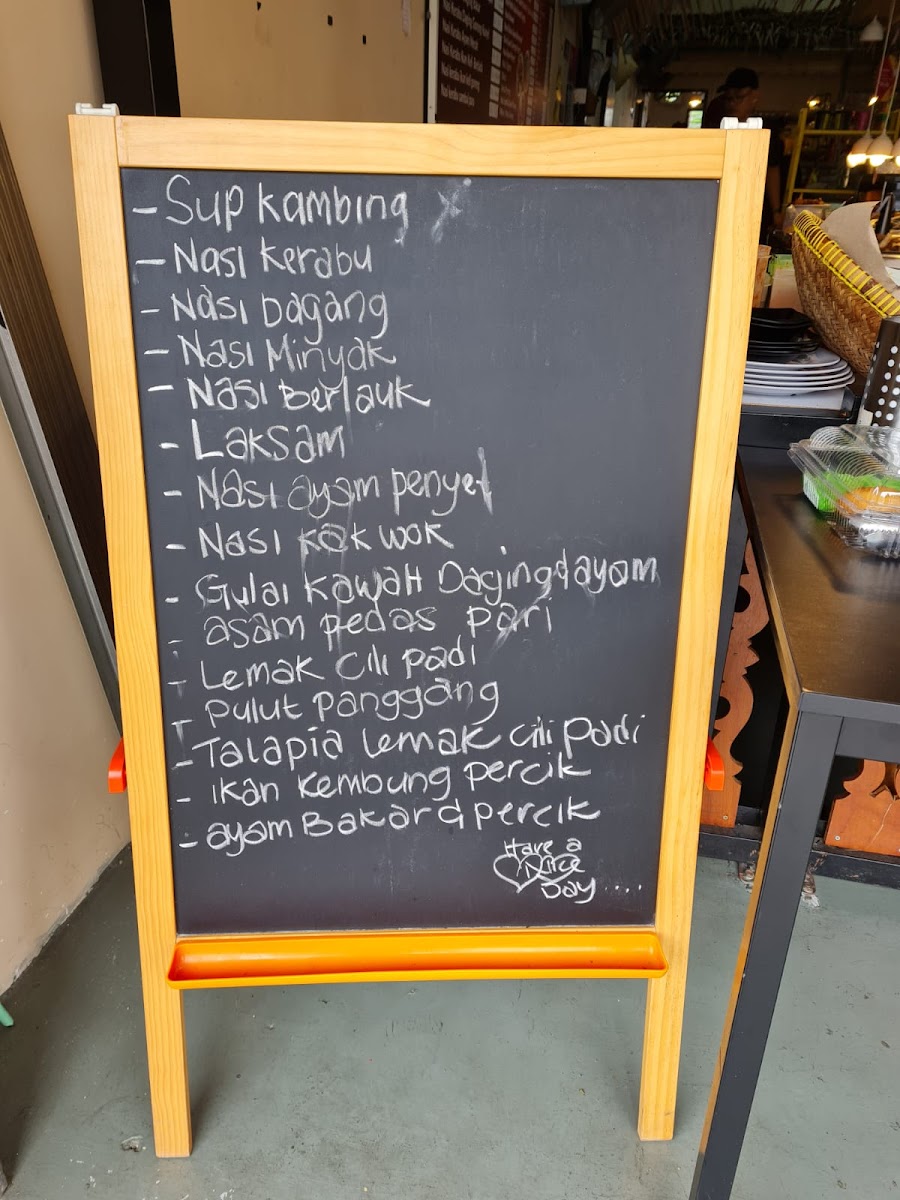 - Sup kambing x
- Nasi kerabu
- Nasi Dagang
- Nasi Minyak
- Nasi Berlauk
- Laksam
- Nasi ayam penyet
- Nasi kak wok
- Gulai kawah Daging & ayam
- asam pedas pari
- Lemak cili padi
- pulut panggang
- Talapia lemak cili padi
- ikan kembung percik
- ayam Bakar & percik
Have a
Nice
Day ....